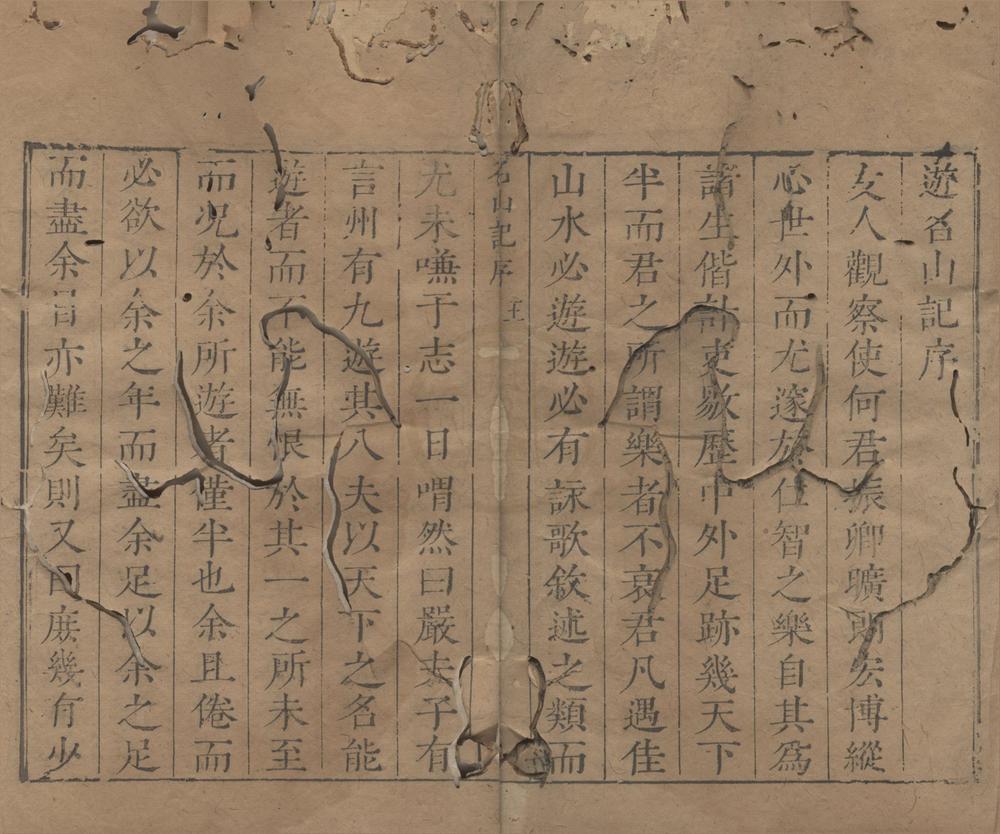 遊名山記序
友人觀察使何君振卿曠朗宏博縱
心世外而尤邃於仁智之樂自其為
諸生偕計吏敭歷中外足跡幾天下
半而君之所謂樂者不衰君凡遇佳
山水必遊遊必有詠歌敘述之類而
名山記序
尤未嗛于志一日喟然曰嚴夫子有
言州有九遊其八夫以天下之名能
遊者而不能無恨於其一之所未至
而況於余所遊者僅半也余且倦而
必欲以余之年而盡余足以余之足
而盡余目亦難矣則又曰庶幾有少